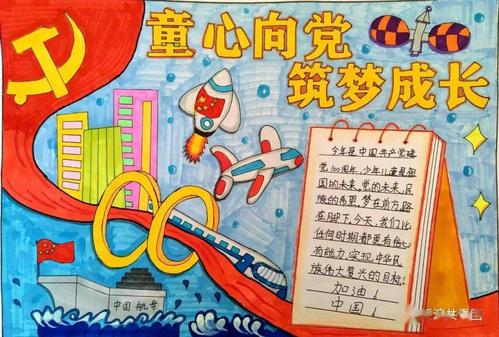 童心向党
筑梦成长
今年是中国共产党建
党100周年,少年儿童是祖
国的未来,党的未来,民
族的希望,梦在前方,路
在脚下,今天,我们比
任何时期都更有信心
有能力,实现,中华民
族伟大复兴的目标!
加油!
中国!
100
中国航母